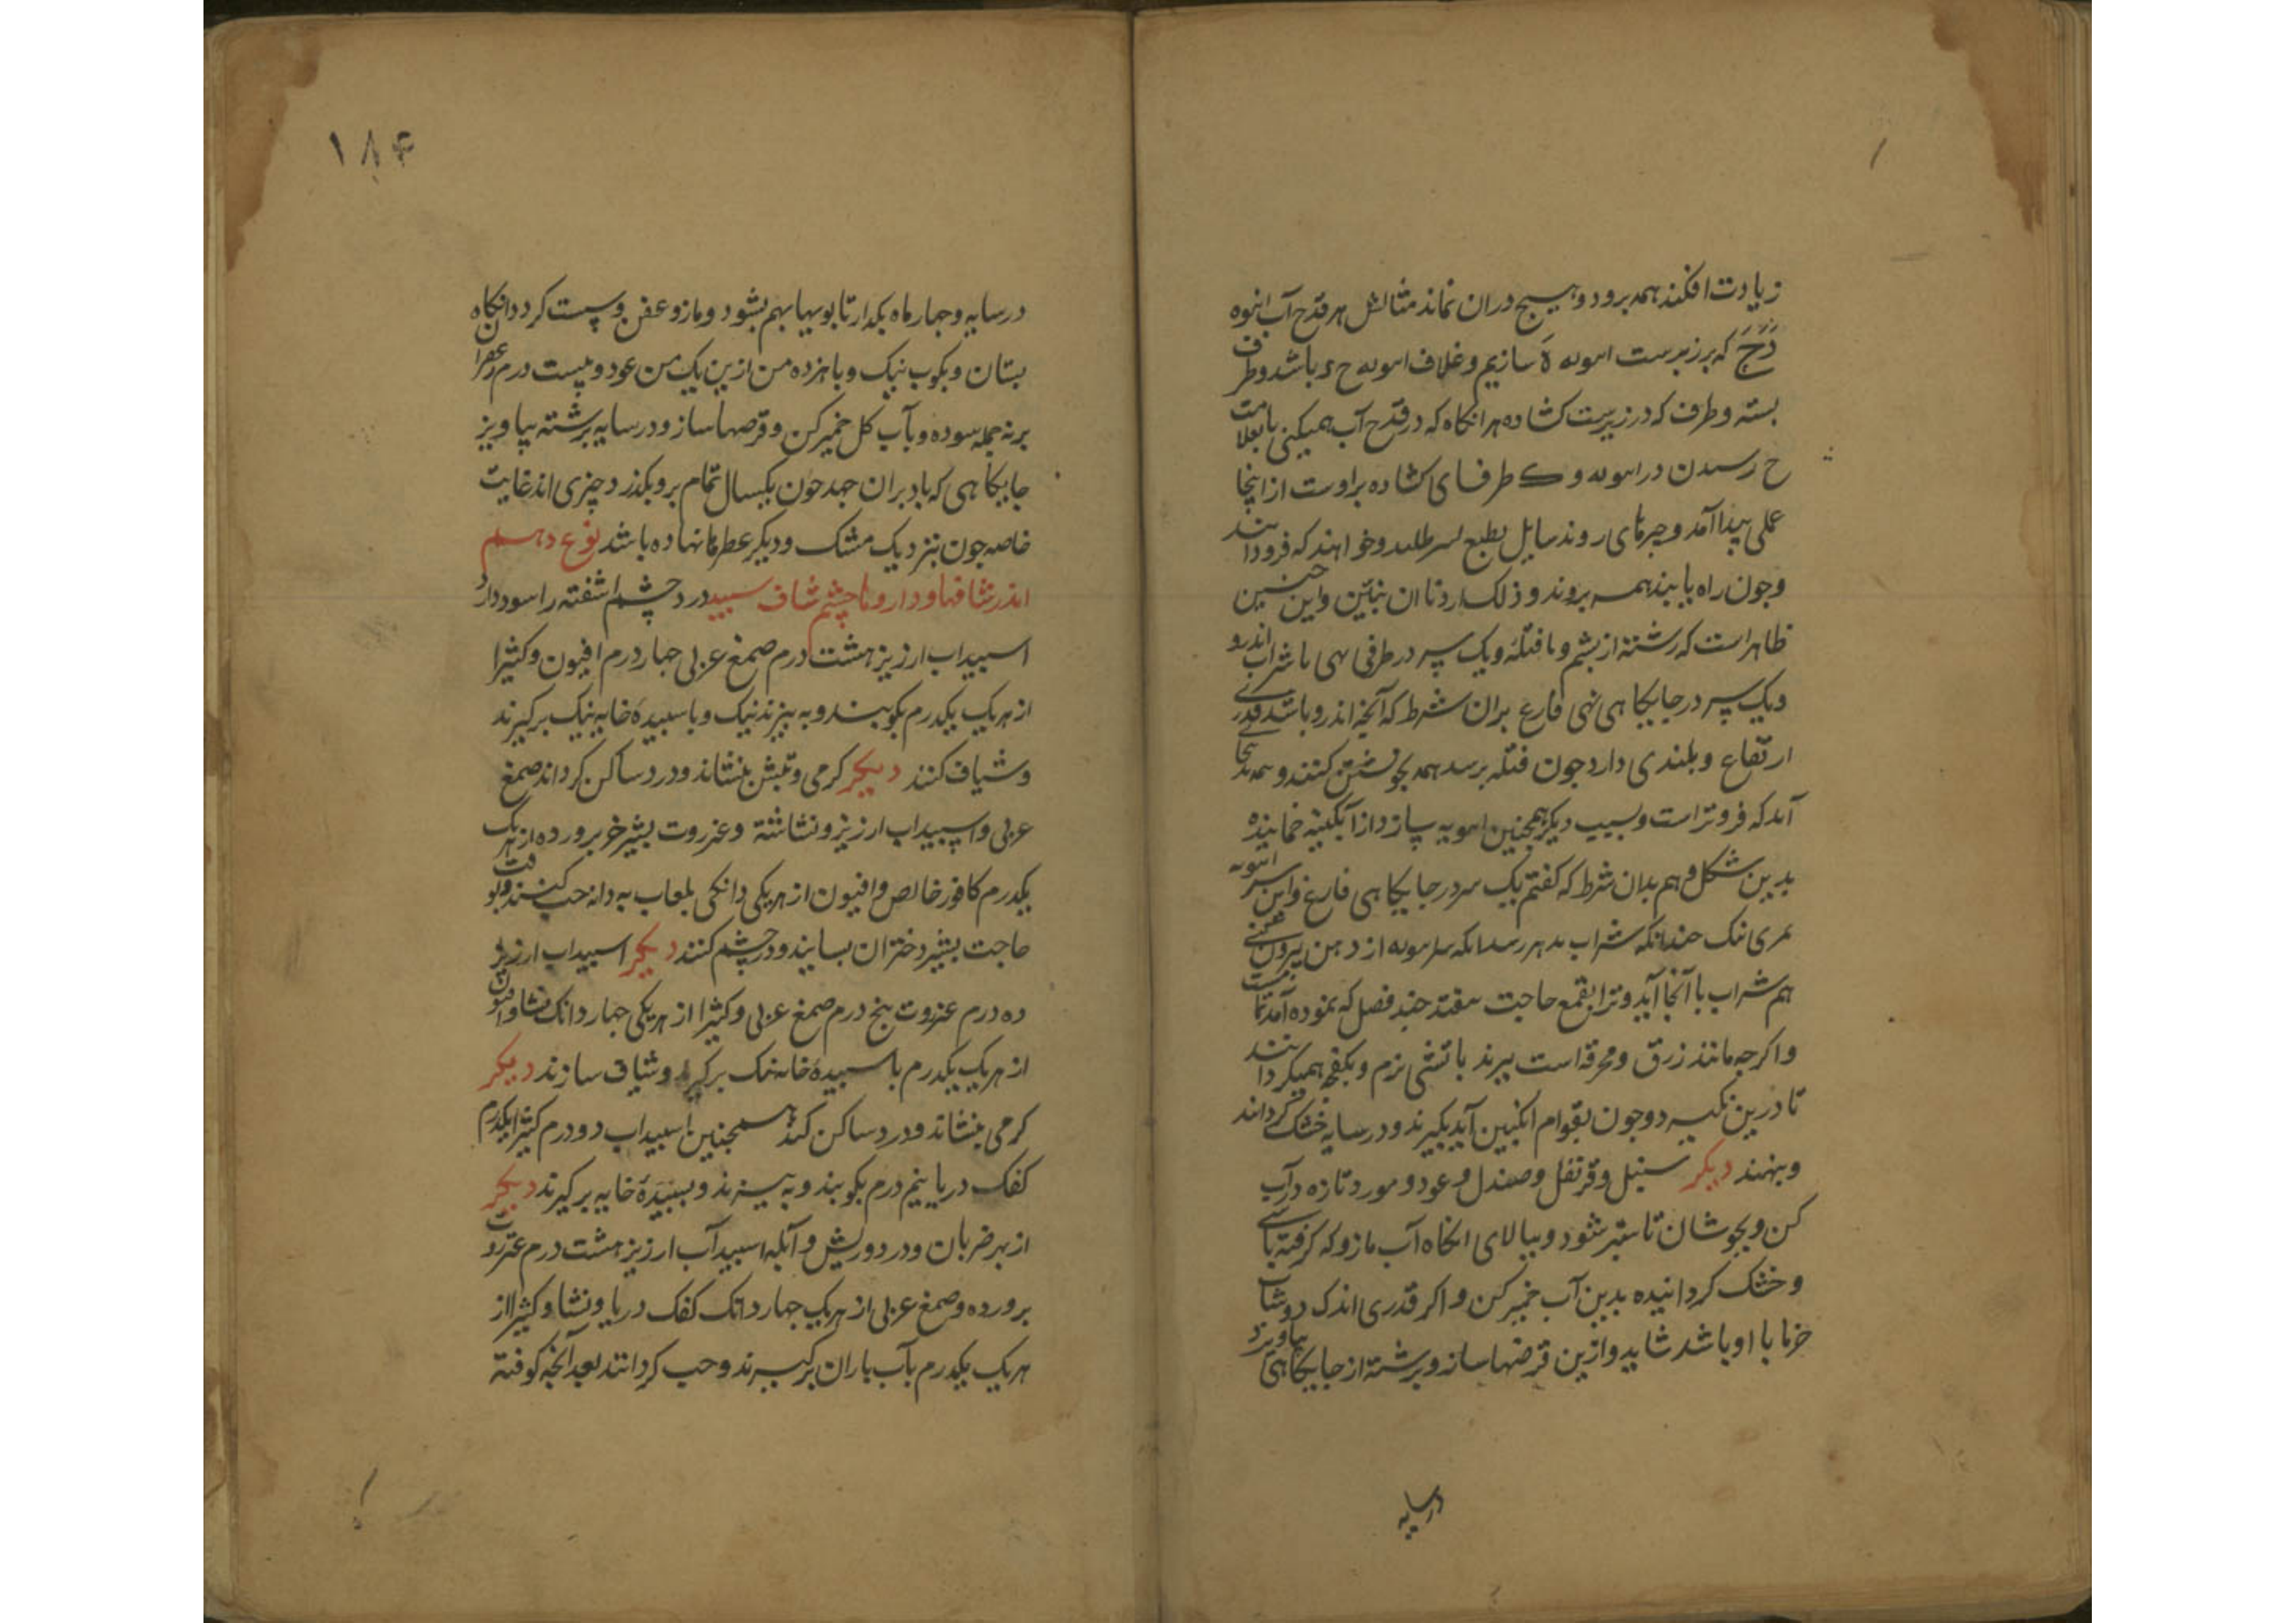 زیادت افکند همه برود و هیچ در ان نماند مثالش هر قدح آب انبوه
دَحَجَ که بر زبرست انبوبه هَ سازیم و غلاف انبوبه ح ء باشد و طرف
بسته و طرف که در زیرست کشاده هر انکاه که در قدح آب همیکنی تا بعلامت
ح رسیدن در انبوبه و ک طرفهای کشاده براوست از اینجا
عملی پیدا آمد و چیزهای رونده سایل بطبع طلبند و خواهند که فرود آیند
و چون راه یابند همه بروند و ذلک اردنا ان نبین و این چنین
ظاهر است که رشته از پشم و یا فتیله و یک سر در طرفی نهی با شراب اندرو
و یک سر در جایکاهی نهی فارغ بران شرط که آنچه اندرو باشد قدری
ارتفاع و بلندی دارد چون فتیله برسد همه بخویشتن کشند و همه بدانجا
آید که فروتر است و بسبب دیکر همچنین انبوبه سازد از آبکینه خمانیده
بدین شکل و هم بدان شرط که کفتم یک سر در جایکاهی فارغ و این سر انبوبه
بمزی نیک چندانکه شراب بدهن رسد انکه سر انبوبه از دهن بیرون کنی
هم شراب با آنجا آید و ترا بقمع حاجت نیفتد چند فصل که نموده آمد تمامست
و اکر چه مانند زرق و مخرقه است بپزند باتشی نرم و بکفچه همیکردانند
تا درین نکیرد و چون بقوام انکبین آید بکیرند و در سایه خشک کردانند
و بنهند دیکر سنبل و قرنفل و صندل و عود و مورد تازه در آب
کن و بجوشان تا ستبر شود و بپالای انکاه آب مازو که کرفته باشی
و خشک کردانیده بدین آب خمیر کن و اکر قدری اندک دوشاب
خرما با او باشد شاید و ازین قرصها ساز و برشته از جایکاهی بیاویزد
درسایه
۱۸۴
در سایه و چهار ماه بکدار تا بویها بهم بشود و مازو عفن و پست کردد انکاه
بستان و بکوب نیک و با هر ده من ازین یک من عود و بیست درم زعفران
برنه جمله سوده و بآب کل خمیر کن و قرصها ساز و در سایه برشته بیاویز
جایکاهی که باد بران جهد چون یکسال تمام برو بکذرد چیزی اند غایت
خاصه چون بنزدیک مشک و دیکر عطرها نهاده باشد نوع دهم
اندر شافها و داروهاء چشم شاف سپید درد چشم اشفته را سود دارد
اسپیداب ارزیز هشت درم صمغ عربی چهار درم افیون و کثیرا
از هر یک یکدرم بکوبند و به بیزند نیک و با سپیدهٔ خایه نیک برکیرند
و شیاف کنند دیکر کرمی و تپش بنشاند و درد ساکن کرداند صمغ
عربی و اسپیداب ارزیز و نشاشته و عنزروت بشیر خر پرورده از هر یک
یکدرم کافور خالص و افیون از هر یکی دانکی بلعاب به دانه حب کنند و بوقت
حاجت بشیر دختران بسایند و در چشم کنند دیکر اسپیداب ارزیز
ده درم عنزروت پنج درم صمغ عربی و کثیرا از هر یکی چهار دانک نشا و افیون
از هر یک یکدرم با سپیدهٔ خایه نیک برکیرند و شیاف سازند دیکر
کرمی بنشاند و درد ساکن کند همچنین اسپیداب دو درم کثیرا یکدرم
کفک دریا نیم درم بکوبند و به بیزند و بسپیدهٔ خایه برکیرند دیکر
از بهر ضربان و درد و ریش و آبله اسپیدآب ارزیز هشت درم عنزروت
پرورده و صمغ عربی از هر یک چهار دانک کفک دریا و نشا و کثیرا از
هر یک یکدرم بآب باران برکیرند و حب کردانند بعد آنچه کوفته